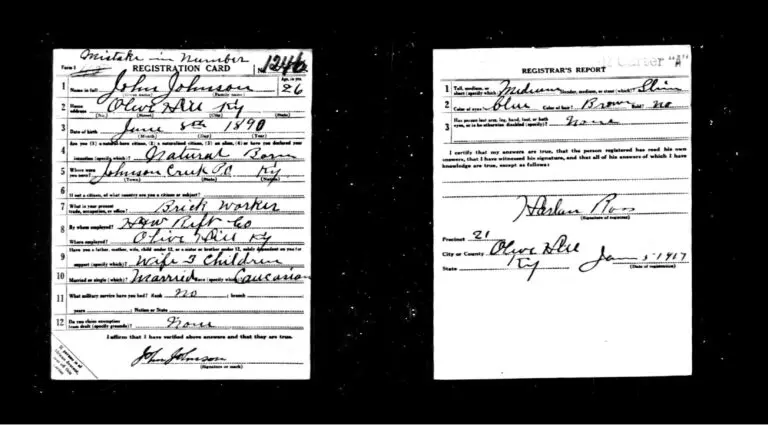 Mistake in Number
Form 1 REGISTRATION CARD No. 1246
1 Name in full John Johnson Age, in yrs. 26
(Given name) (Family name)
2 Home address Olive Hill Ky
(No.) (Street) (City) (State)
3 Date of birth June 8th 1890
(Month) (Day) (Year)
Are you (1) a natural-born citizen, (2) a naturalized citizen, (3) an alien, (4) or have you declared your
4 intention (specify which)? Natural Born
5 Where were you born? Johnson Creek P.O. Ky
(Town) (State) (Nation)
6 If not a citizen, of what country are you a citizen or subject?
7 What is your present trade, occupation, or office? Brick Worker
8 By whom employed?
Where employed? Olive Hill Ky
9 Have you a father, mother, wife, child under 12, or a sister or brother under 12, solely dependent on you for
support (specify which)? Wife Children
10 Married or single (which)? Married Race (specify which)? Caucasian
11 What military service have you had? Rank No ; branch
years ; Nation or State
12 Do you claim exemption from draft (specify grounds)? None
I affirm that I have verified above answers and that they are true.
John Johnson
(Signature or mark)
"A"
REGISTRAR'S REPORT
1 Tall, medium, or short (specify which)? Medium Slender, medium, or stout (which)? Slim
2 Color of eyes? blue Color of hair? Brown Bald? No
3 Has person lost arm, leg, hand, foot, or both eyes, or is he otherwise disabled (specify)? None
I certify that my answers are true, that the person registered has read his own
answers, that I have witnessed his signature, and that all of his answers of which I have
knowledge are true, except as follows:
Harlan
(Signature of registrar)
Precinct 21
City or County Olive Hill
State Ky
5 1917
(Date of registration)